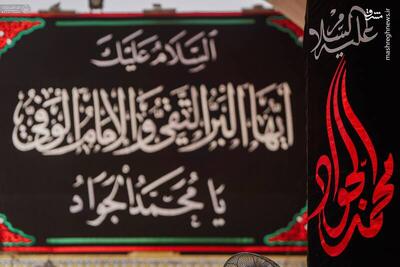 السلام عليك
أيها البر التقي والإمام الوفي
يا محمد الجواد
عليه السلام
محمد الجواد
مشرق
mashreghnews.ir